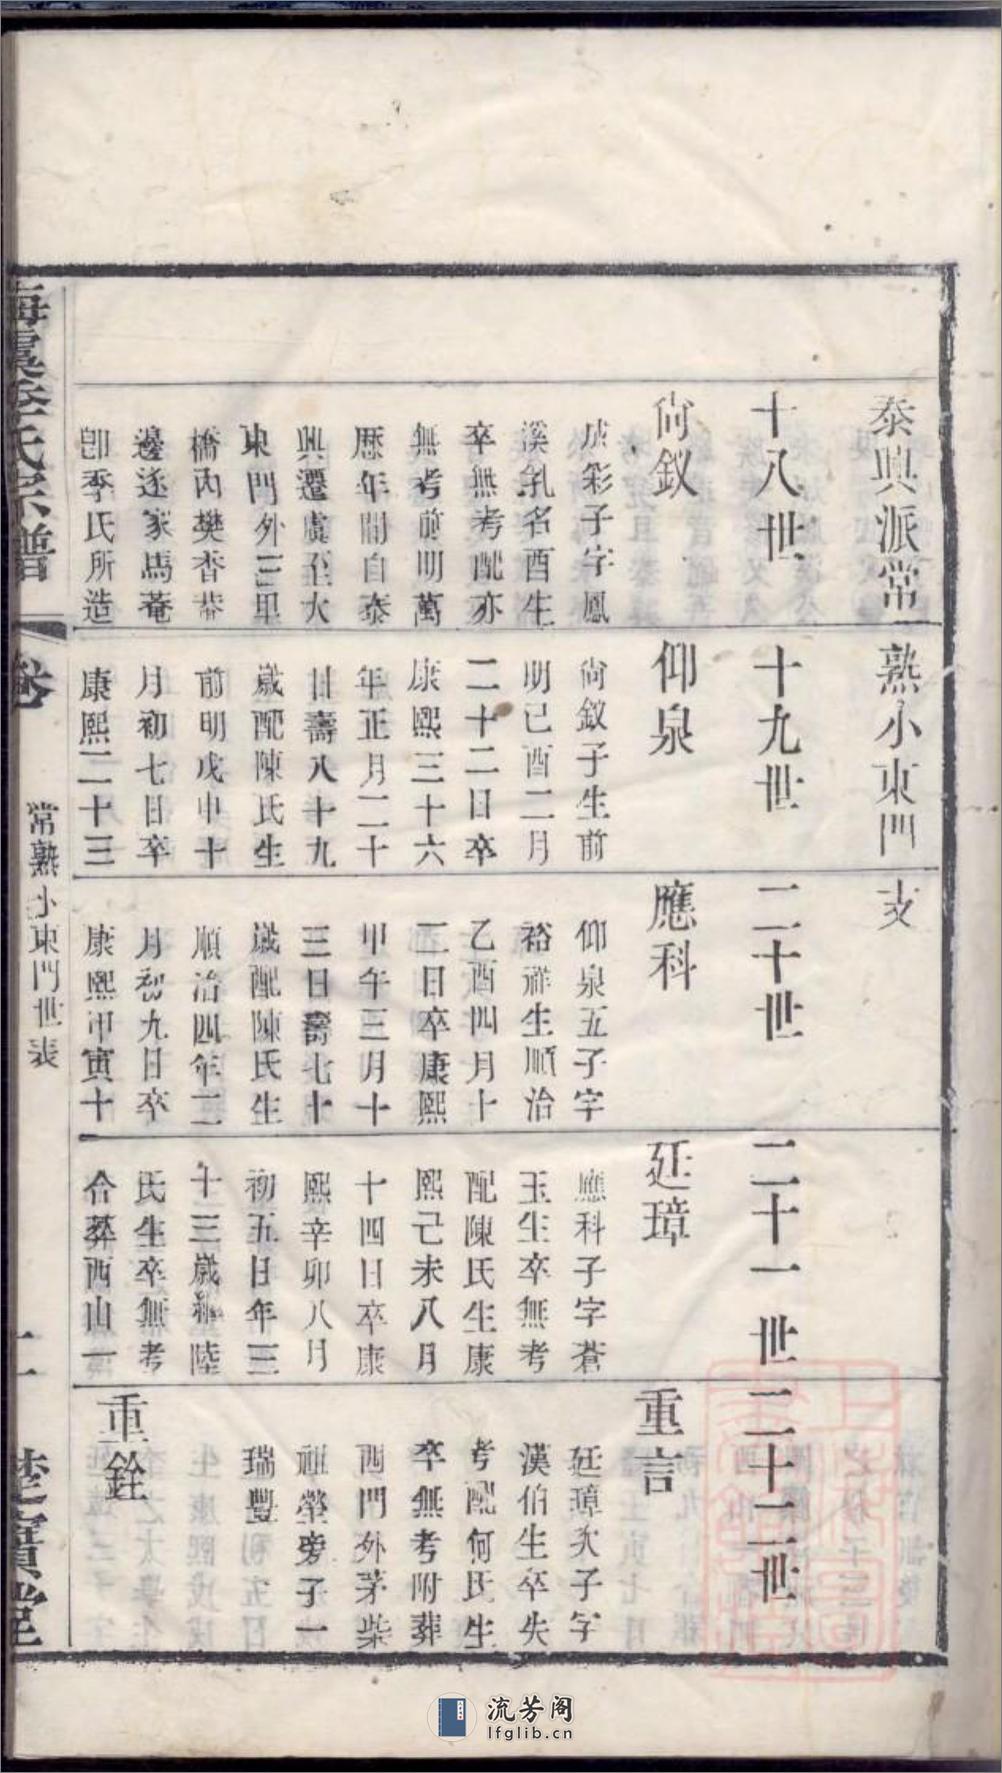 泰興派常熟小東門支
十八世
十九世
二十世
二十一世
二十二世
尙釵
成彩子字鳳
溪乳名酉生
卒無考配亦
無考前明萬
歷年間自泰
興遷虞至大
東門外三里
橋內樊香菴
邊遂家焉菴
卽季氏所造
仰泉
尙釵子生前
明己酉二月
二十二日卒
康熙三十六
年正月二十
日壽八十九
歲配陳氏生
前明戊申十
月初七日卒
康熙二十三
應科
仰泉五子字
裕祥生順治
乙酉四月十
二日卒康熙
甲午三月十
三日壽七十
歲配陳氏生
順治四年二
月初九日卒
康熙甲寅十
廷璋
應科子字蒼
玉生卒無考
配陳氏生康
熙己未八月
十四日卒康
熙辛卯八月
初五日年三
十三歲繼陸
氏生卒無考
合葬西山一
重言
廷璋次子字
漢伯生卒失
考配何氏生
卒無考附葬
西門外茅柴
祖塋旁子一
瑞豐
重銓
海虞季氏宗譜
卷
常熟小東門世表
二
楚寶堂
流芳阁
lfglib.cn